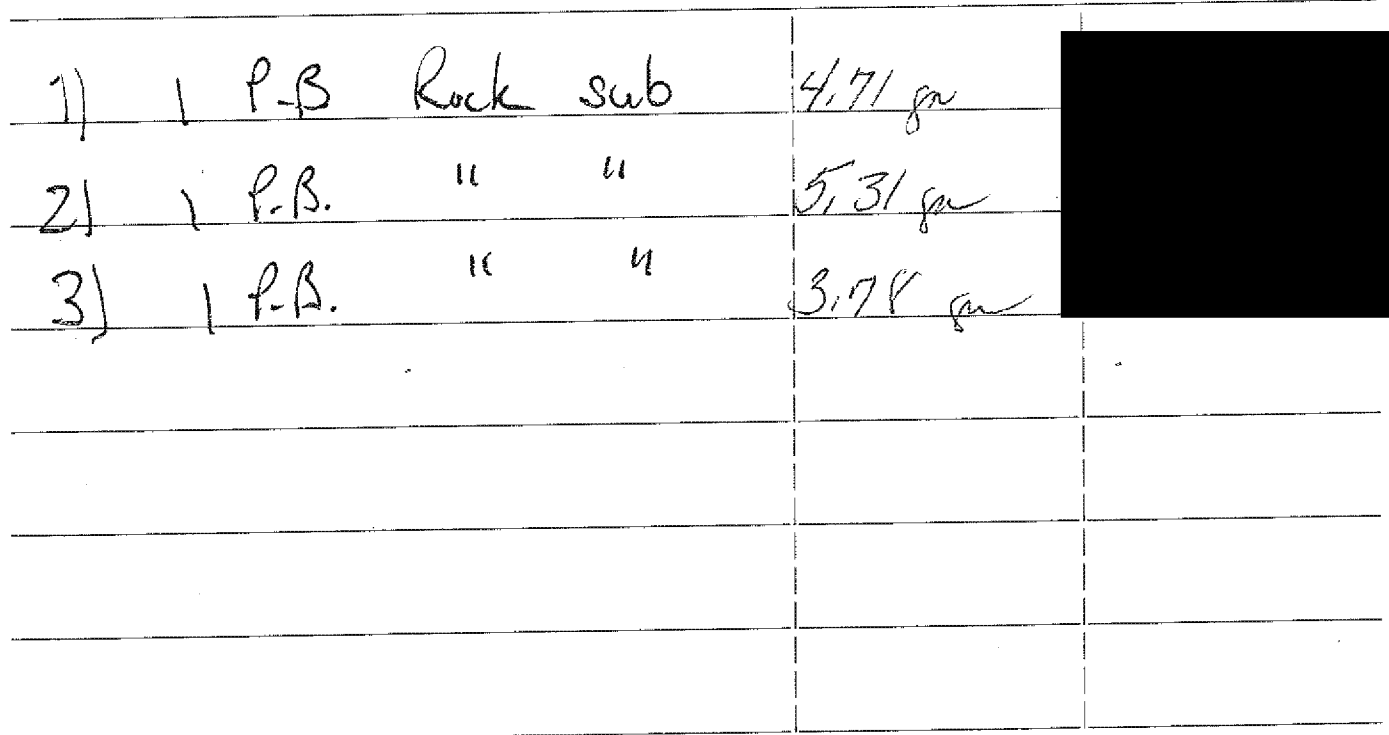 1) 1 P-B Rock sub 4.71 gm
2) 1 P.B. " " 5.31 gm
3) 1 P-B. " " 3.78 gm